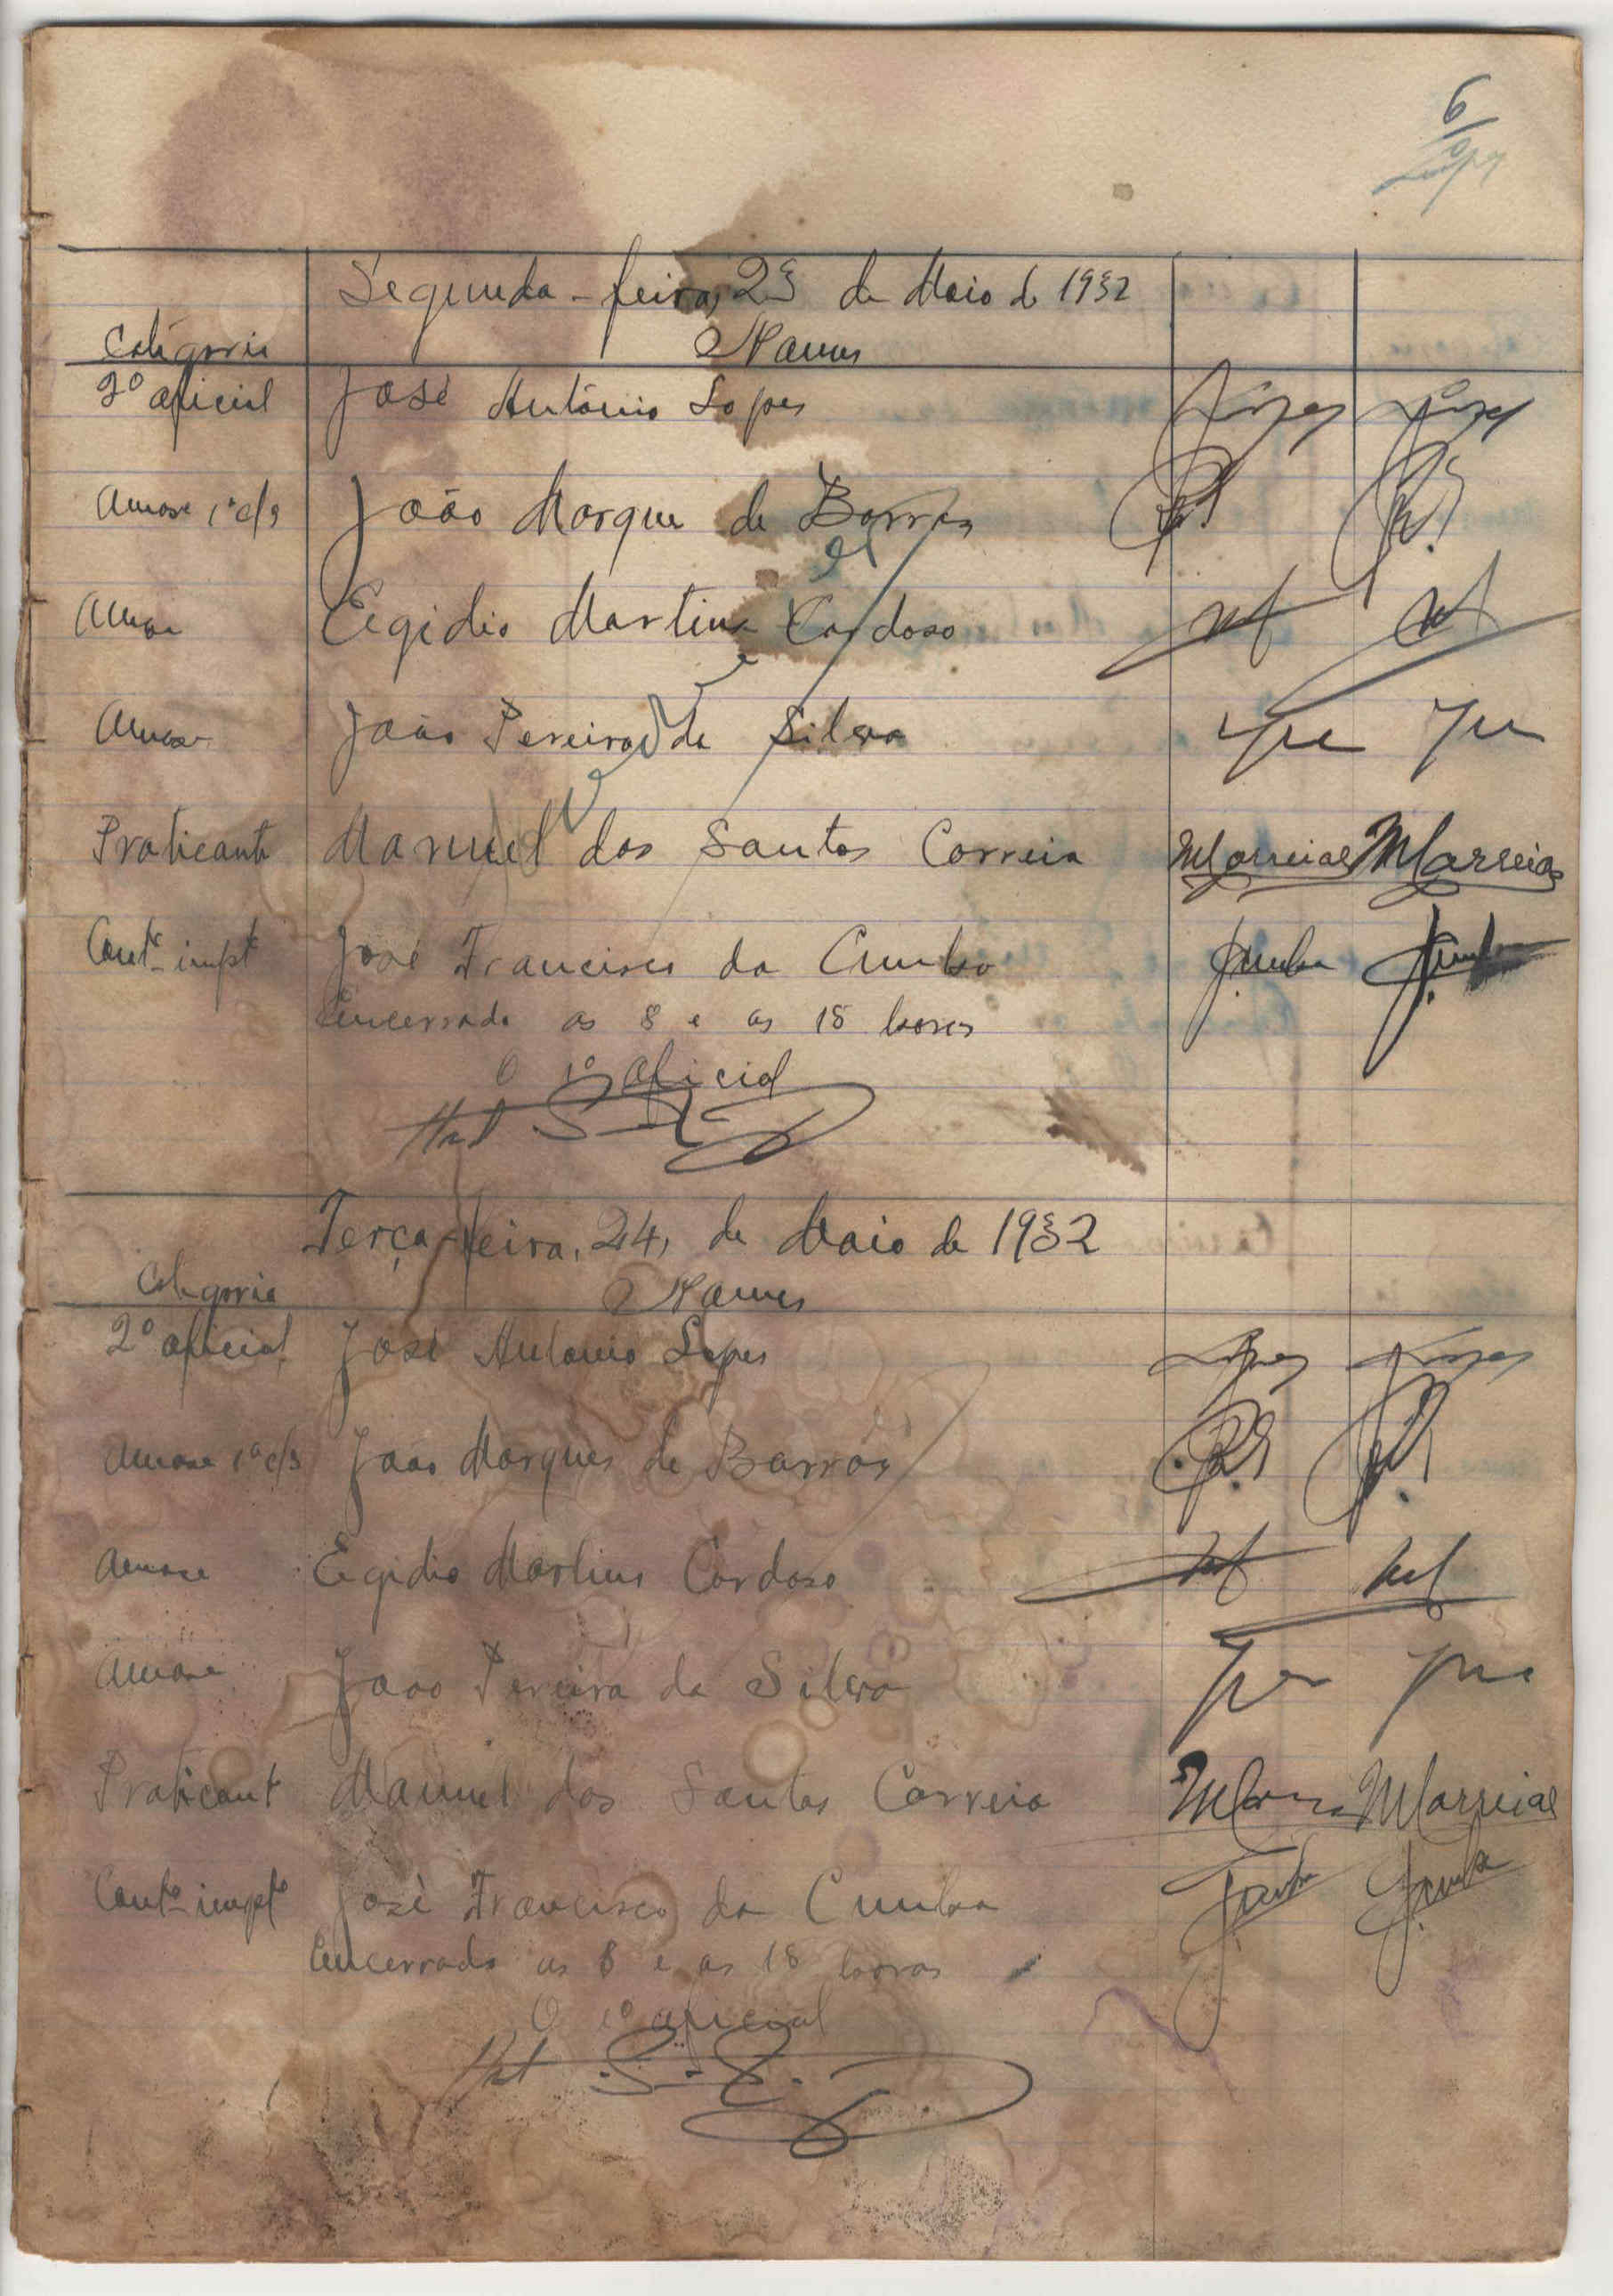 6
Lopes
Segunda-feira, 23 de Maio de 1932
Categoria Nomes
2º oficial José António Lopes Lopes Lopes
1ª cl João Marques de Barros
Egidio Martins Cardoso
João Pereira da Silva
Praticante Manuel dos Santos Correia MCorreia MCorreia
Contº impº José Francisco da Cunha JCunha JCunha
Encerrado as 8 e as 18 horas
O 1º oficial
Terça-feira, 24, de Maio de 1932
Categoria Nomes
2º oficial José Antonio Lopes Lopes Lopes
1ª cl João Marques de Barros
Egidio Martins Cardoso
João Pereira da Silva
Praticant Manuel dos Santos Correia MCorreia MCorreia
Contº impº José Francisco da Cunha JCunha JCunha
Encerrado as 8 e as 18 horas
O 1º oficial